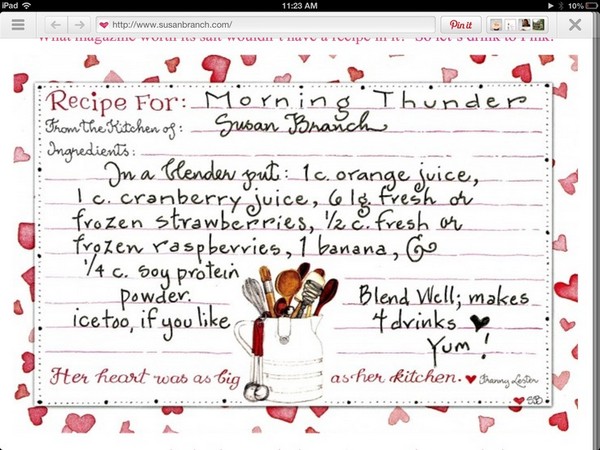 iPad 11:23 AM 10%
http://www.susanbranch.com/ Pin it
What magazine worth its salt wouldn't have a recipe in it? So let's drink to Pink!
Recipe For: Morning Thunder
From the Kitchen of: Susan Branch
Ingredients:
In a blender put: 1 c. orange juice,
1 c. cranberry juice, 6 lg. fresh or
frozen strawberries, ½ c. fresh or
frozen raspberries, 1 banana, &
¼ c. soy protein
powder.
ice too, if you like
Blend Well; makes
4 drinks
Yum!
Her heart was as big as her kitchen. Franny Lester
SB